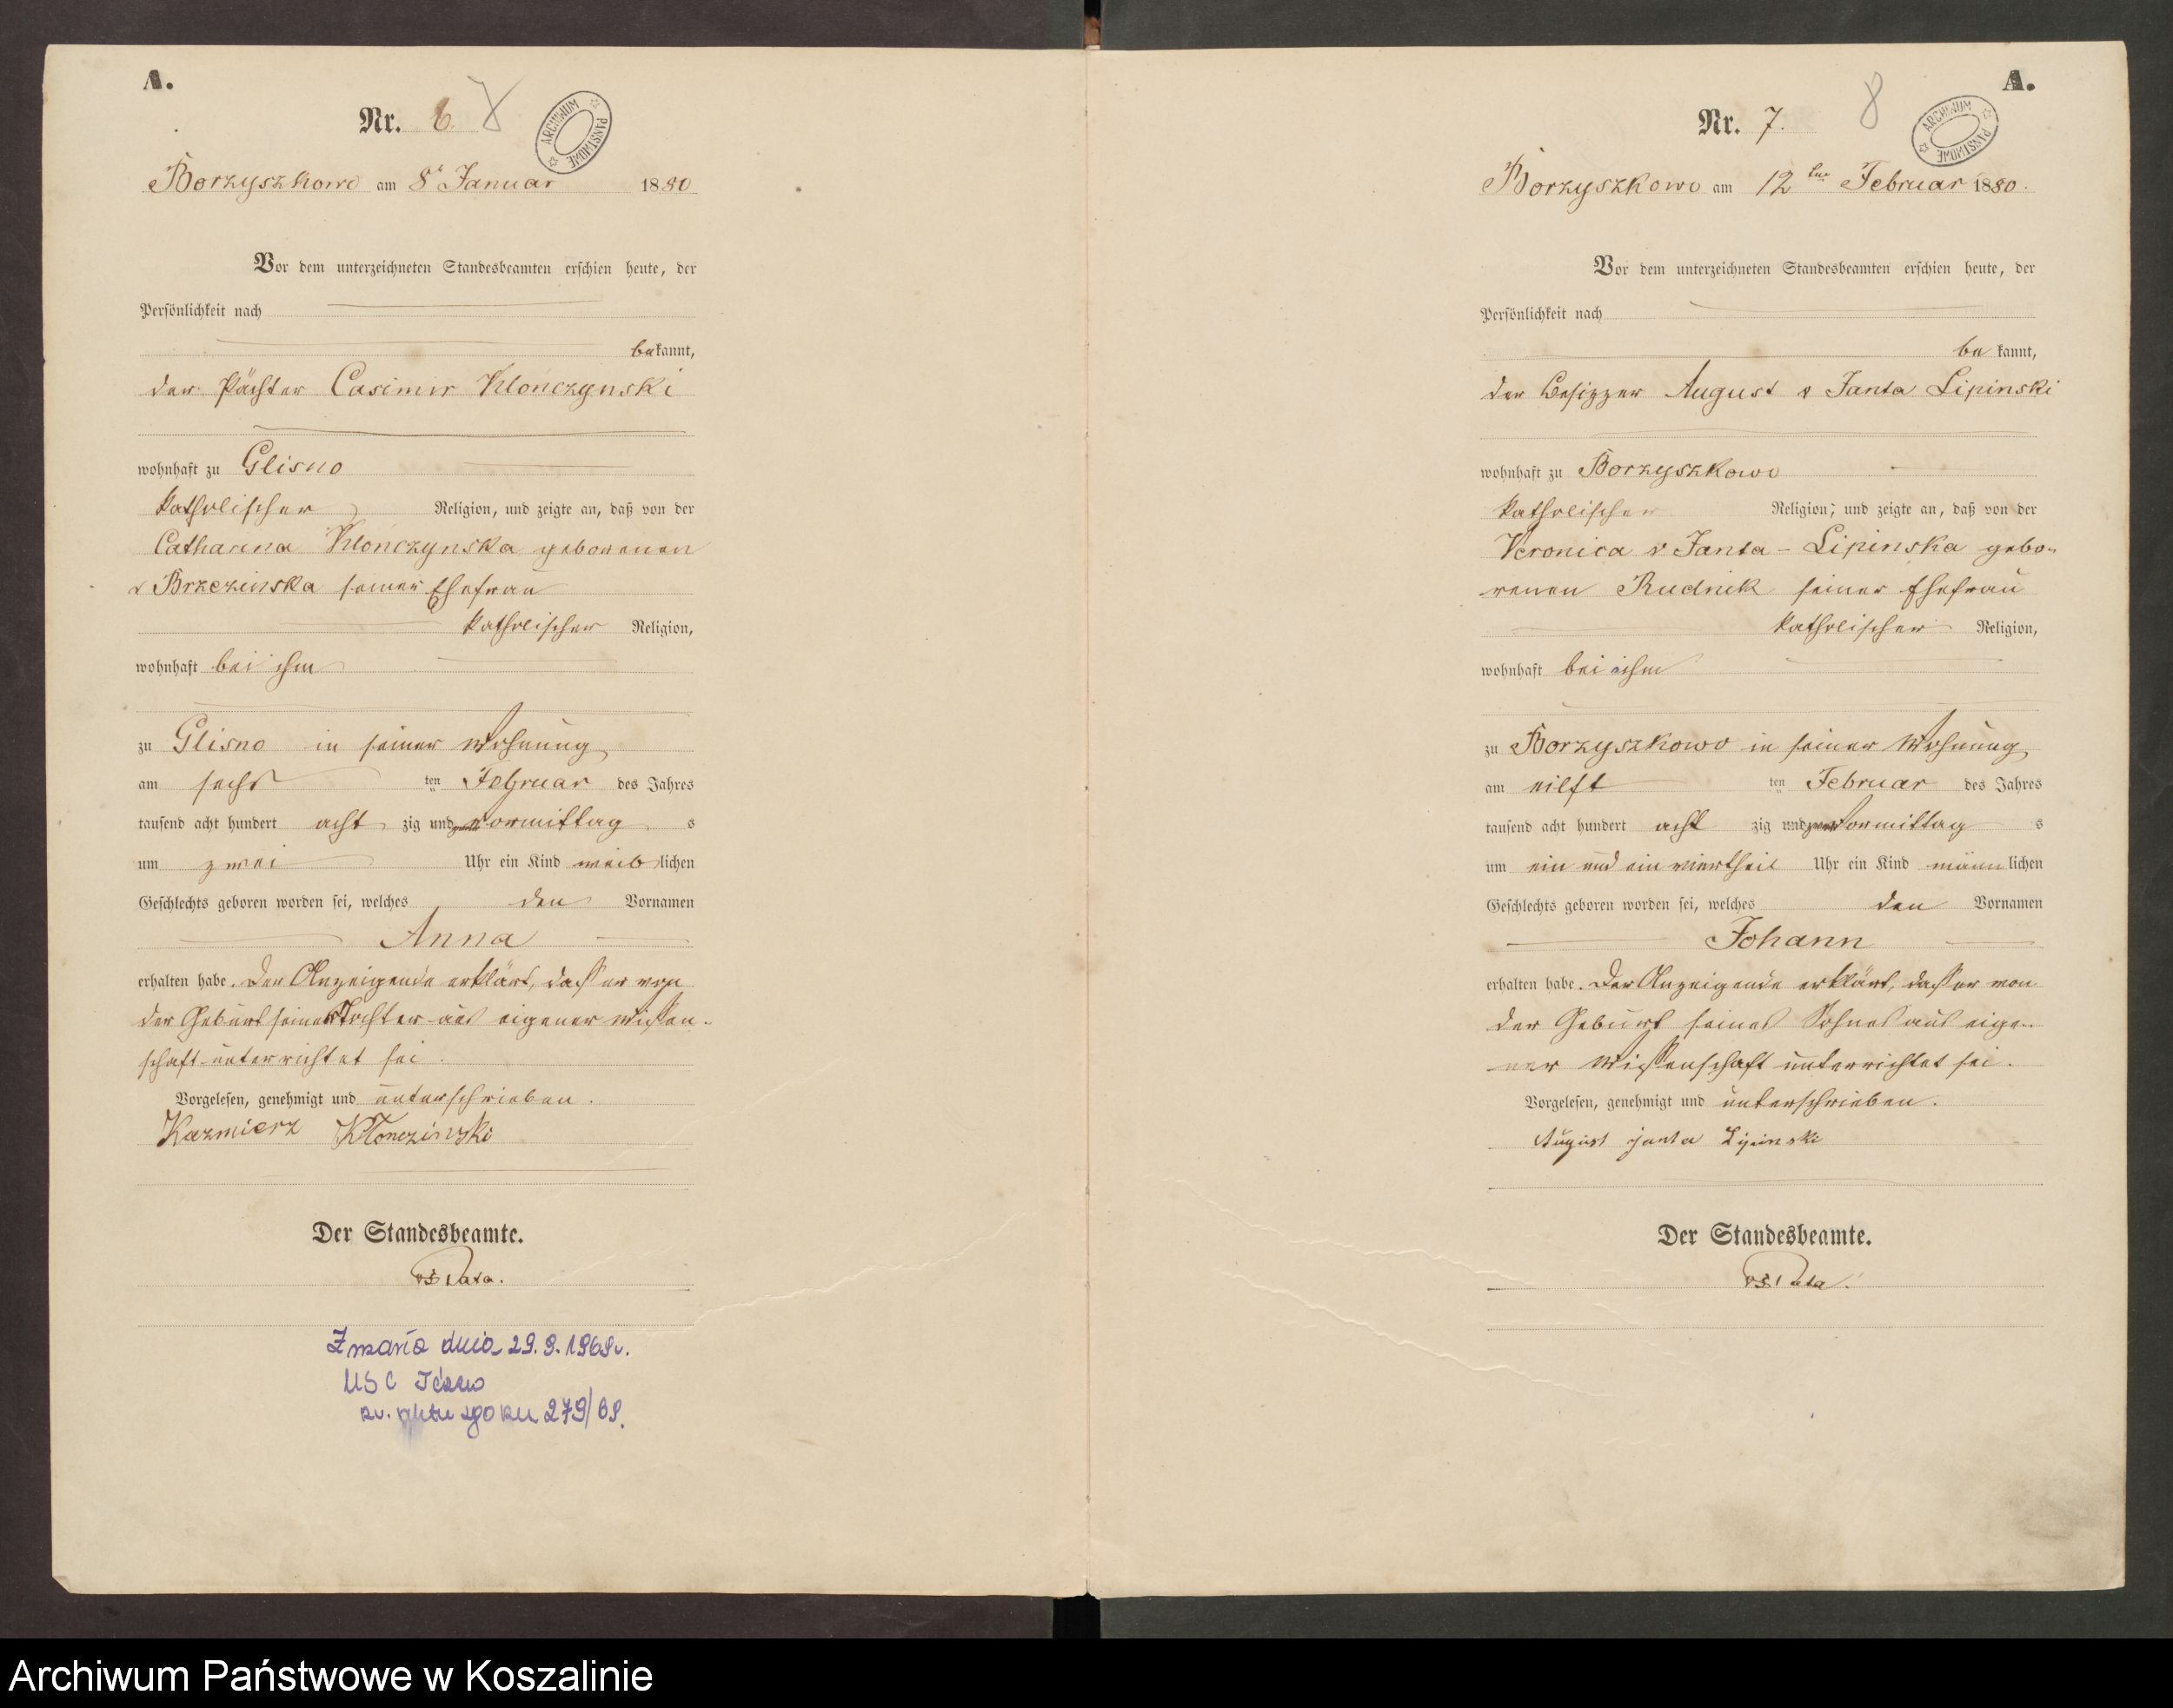 A.
Nr. 6. 7
ARCHIWUM PAŃSTWOWE
Borzyszkowo am 8t Januar 1880
Vor dem unterzeichneten Standesbeamten erschien heute, der
Persönlichkeit nach
bekannt,
der Pächter Casimir Klonczynski
wohnhaft zu Glisno
katholischer Religion, und zeigte an, daß von der
Catharina Klonczynska geborenen
v Brzezinska seiner Ehefrau
katholischer Religion,
wohnhaft bei ihm
zu Glisno in seiner Wohnung
am sechs ten Februar des Jahres
tausend acht hundert acht zig und vormittag s
um zwei Uhr ein Kind weiblichen
Geschlechts geboren worden sei, welches den Vornamen
Anna
erhalten habe. Der Anzeigende erklärt, dass er von
der Geburt seiner Tochter aus eigener Wissen-
schaft unterrichtet sei.
Vorgelesen, genehmigt und unterschrieben.
Kazmierz Klonczinski
Der Standesbeamte.
Zmarła dnia 29.9.1969r.
USC Tczew
nr. aktu zgonu 279/69.
A.
Nr. 7. 8
ARCHIWUM PAŃSTWOWE
Borzyszkowo am 12ten Februar 1880.
Vor dem unterzeichneten Standesbeamten erschien heute, der
Persönlichkeit nach
bekannt,
der Besizzer August v Janta Lipinski
wohnhaft zu Borzyszkowo
katholischer Religion, und zeigte an, daß von der
Veronica v Janta-Lipinska gebo-
renen Rudnik seiner Ehefrau
katholischer Religion,
wohnhaft bei ihm
zu Borzyszkowo in seiner Wohnung
am eilft ten Februar des Jahres
tausend acht hundert acht zig und vormittag s
um ein und ein viertheil Uhr ein Kind männlichen
Geschlechts geboren worden sei, welches den Vornamen
Johann
erhalten habe. Der Anzeigende erklärt, dass er von
der Geburt seines Sohnes aus eige-
ner Wissenschaft unterrichtet sei.
Vorgelesen, genehmigt und unterschrieben.
August Janta Lipinski
Der Standesbeamte.
Archiwum Państwowe w Koszalinie